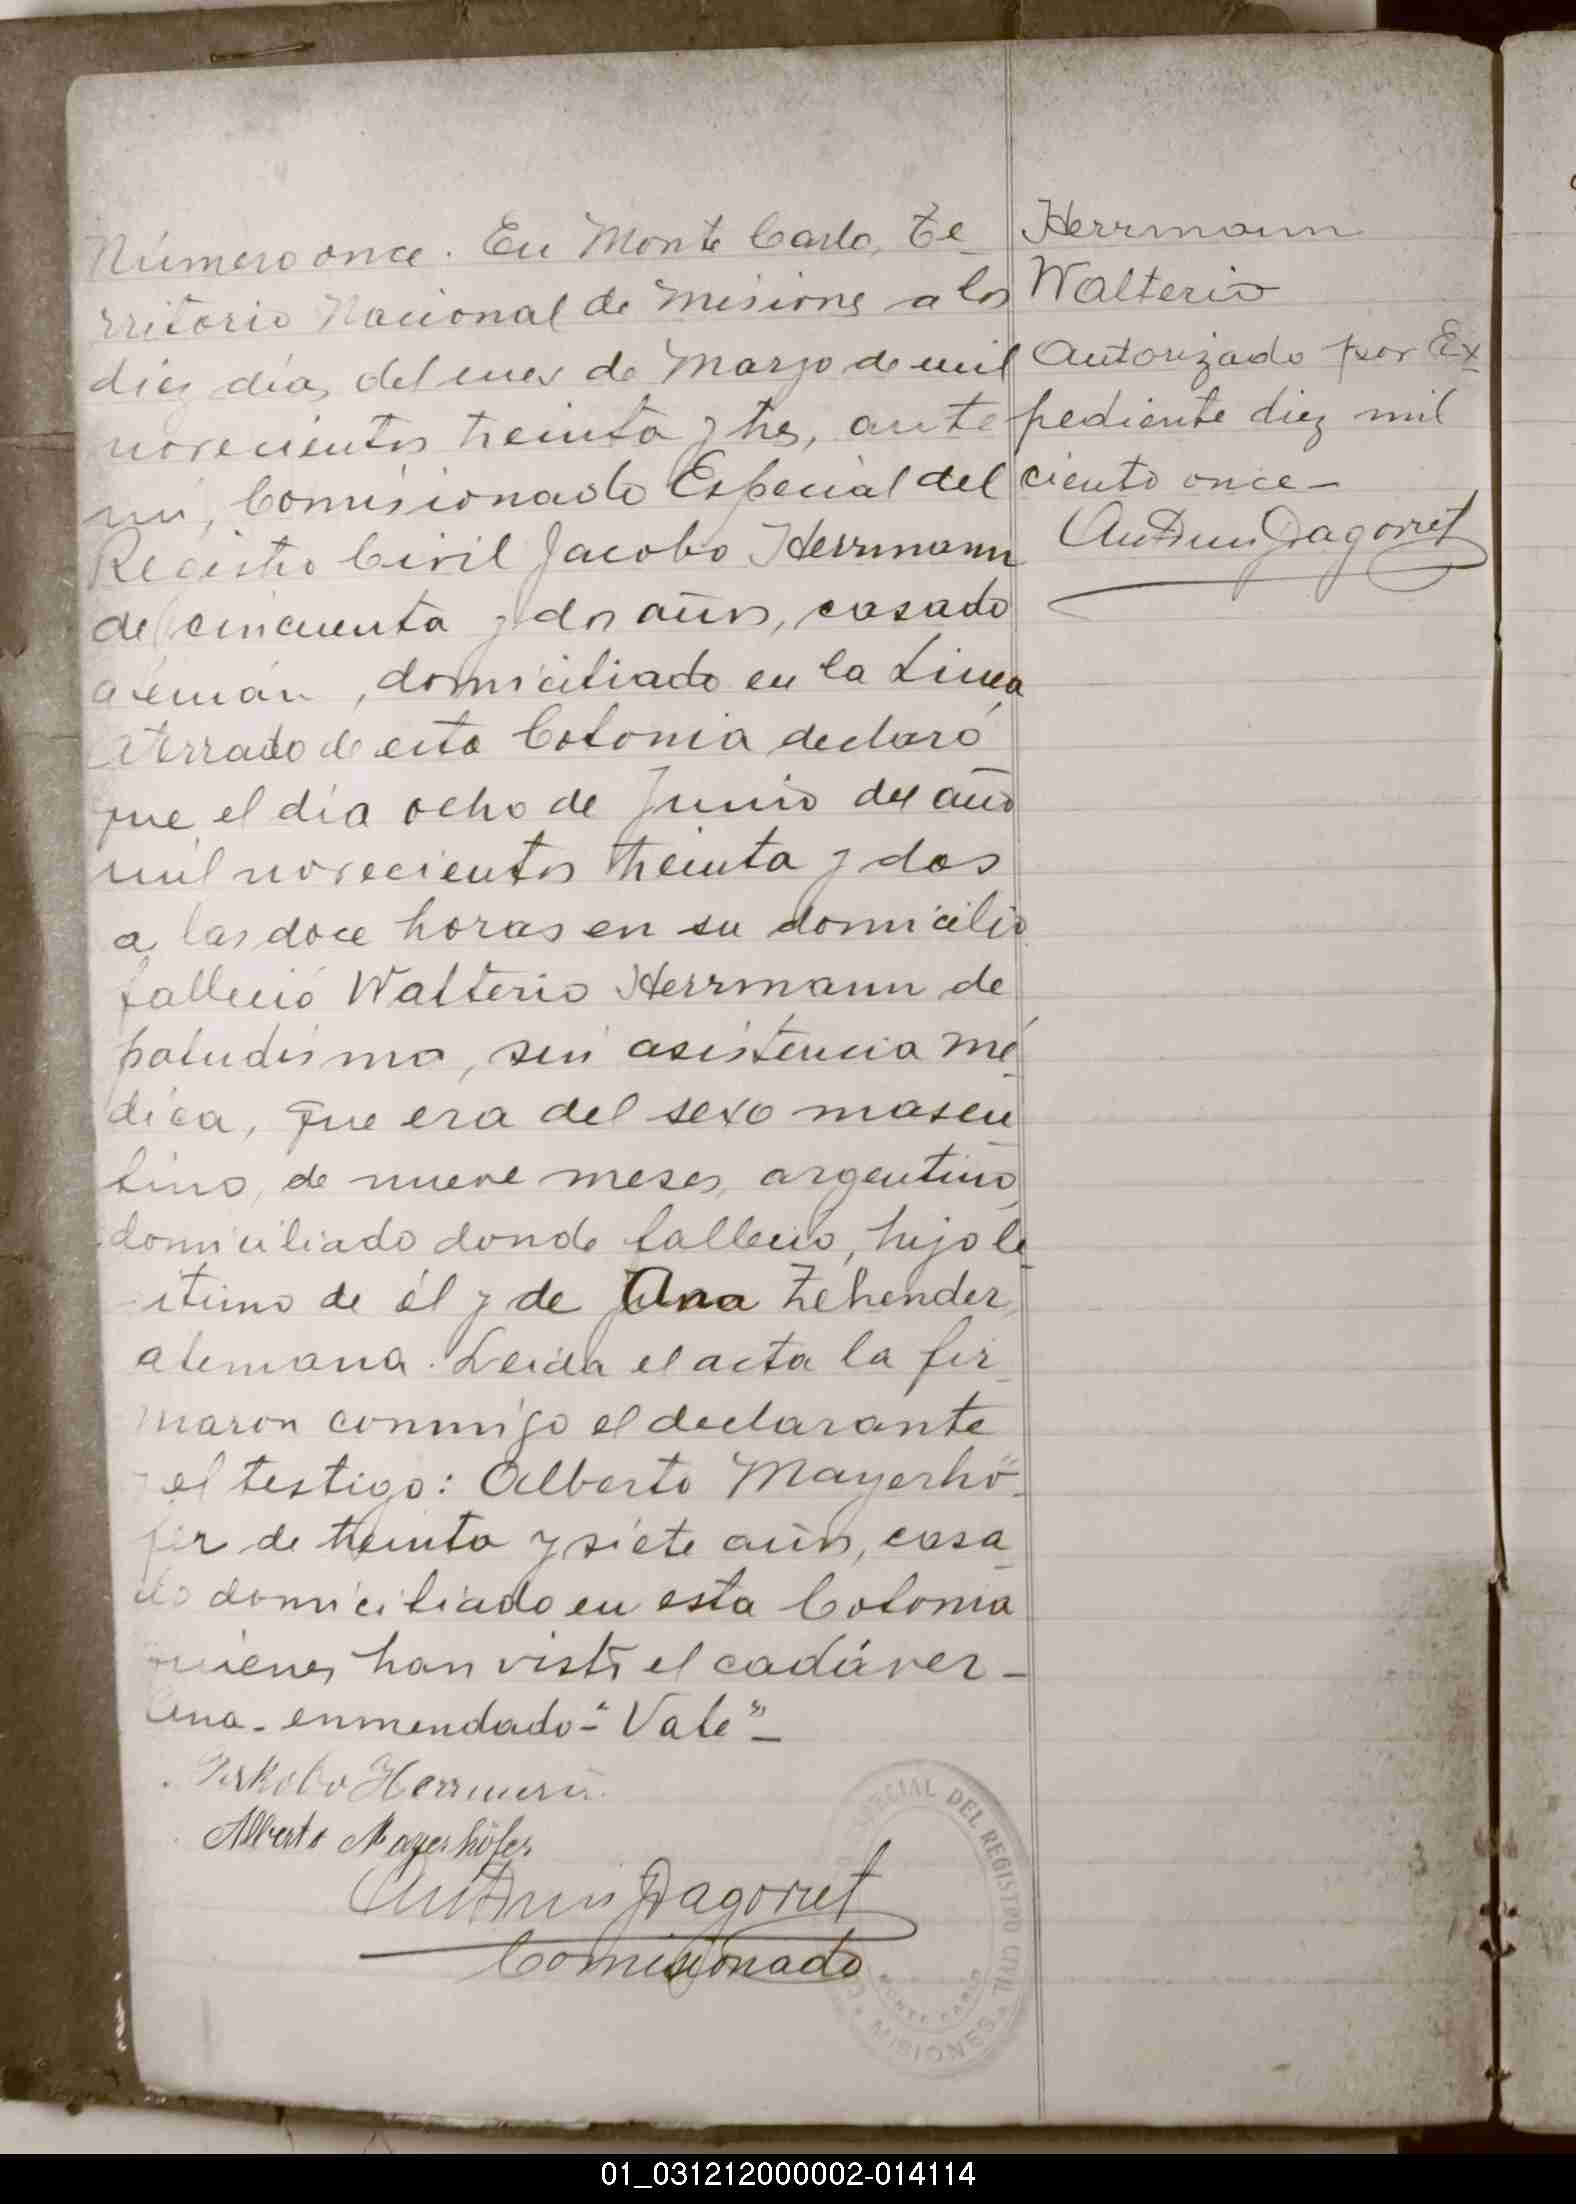 Número once. En Monte Carlo, Te-
rritorio Nacional de Misiones a los
diez días del mes de Marzo de mil
novecientos treinta y tres, ante
mí, Comisionado Especial del
Registro Civil Jacobo Herrmann
de cincuenta y dos años, casado
alemán, domiciliado en la Linea
de esta Colonia declaró
que el día ocho de Junio del año
mil novecientos treinta y dos
a las doce horas en su domicilio
falleció Walterio Herrmann de
paludismo, sin asistencia mé-
dica, que era del sexo mascu-
lino, de nueve meses, argentino,
domiciliado donde falleció, hijo le-
itimo de él y de Ana Zehender,
alemana. Leída el acta la fir-
maron conmigo el declarante
y el testigo: Alberto Mayerhö-
fer de treinta y siete años, casa-
do domiciliado en esta Colonia
quienes han visto el cadáver-
Ana-enmendado-"Vale"-
Jakobo Herrmann
Alberto Mayerhöfer
Dagorret
Comisionado
ESPECIAL DEL REGISTRO CIVIL
MONTE CARLO
MISIONES
Herrmann
Walterio
Autorizado por Ex-
pediente diez mil
ciento once-
Dagorret
01_031212000002-014114